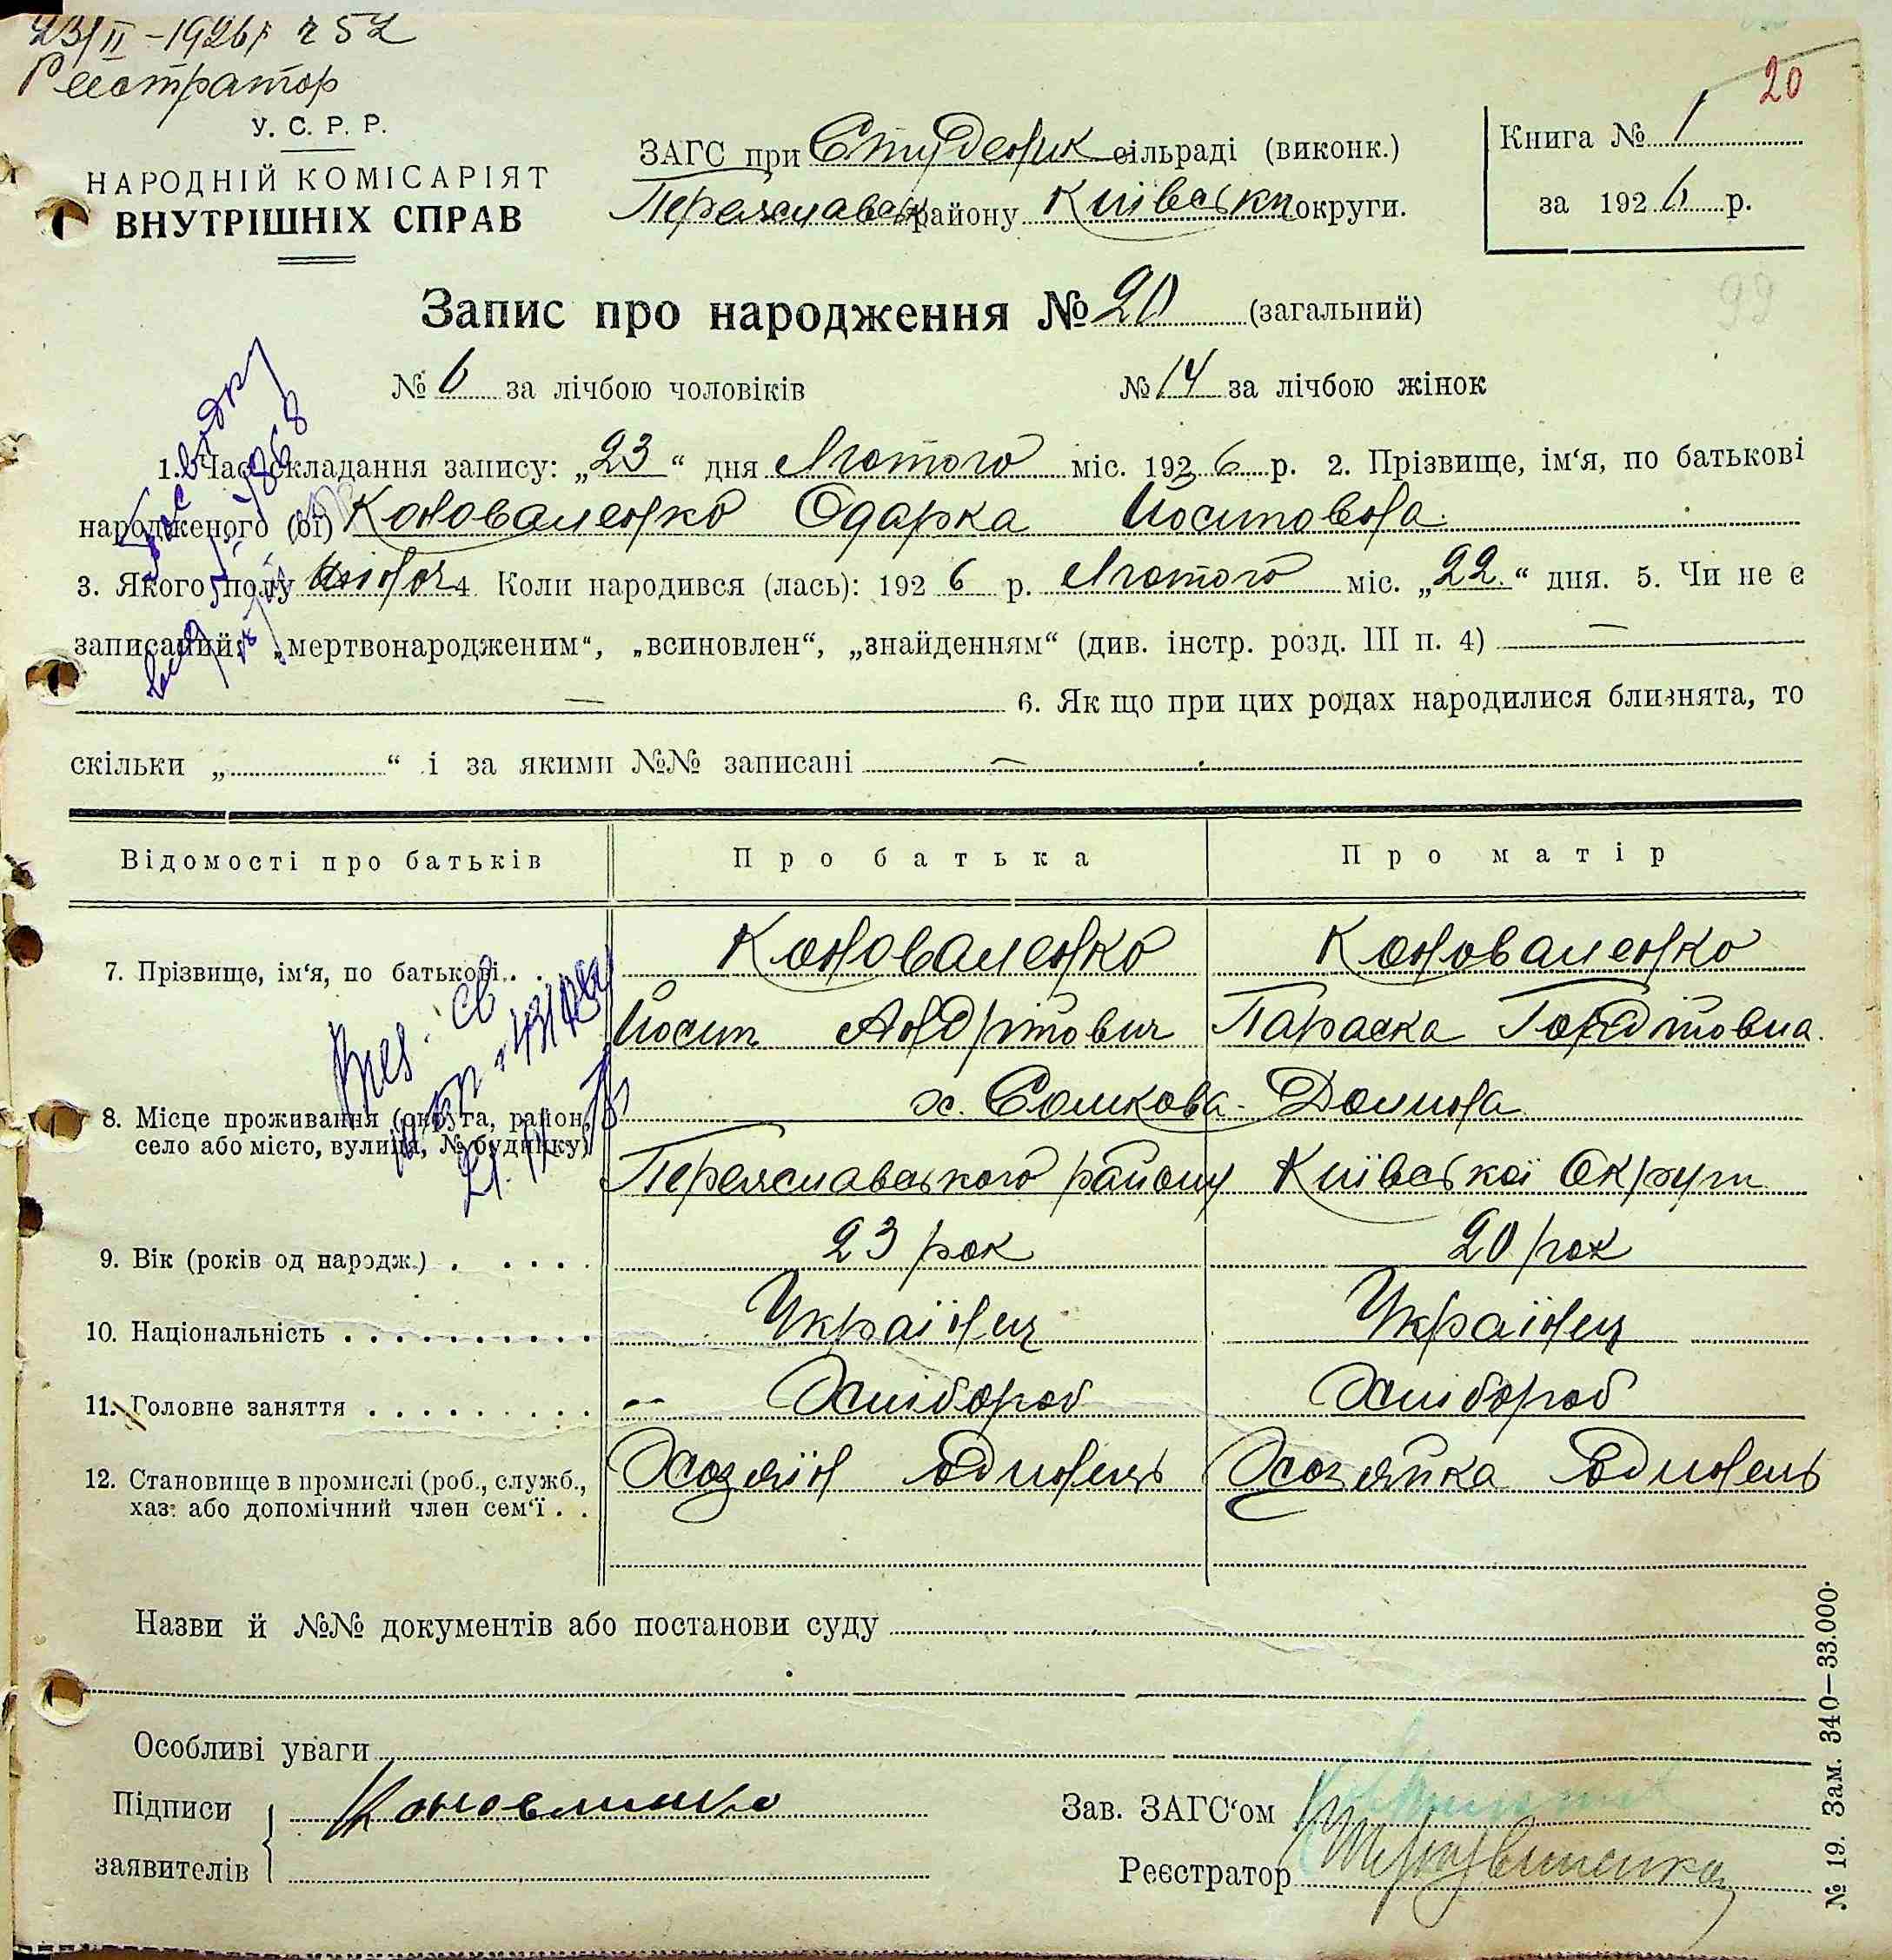 23/II – 1926 р ч 52
Реєстратор
У. С. Р. Р.
НАРОДНІЙ КОМІСАРІЯТ
ВНУТРІШНІХ СПРАВ
ЗАГС при Студеник сільраді (виконк.)
Переяславськ району Київськи округи.
Книга № 1
за 1926 р.
20
99
Запис про народження № 20 (загальний)
№ 6 за лічбою чоловіків № 14 за лічбою жінок
1. Час складання запису: „23“ дня Лютого міс. 1926 р. 2. Прізвище, ім‘я, по батькові
народженого (ої) Коноваленко Одарка Йосиповна
3. Якого полу жіноч 4. Коли народився (лась): 1926 р. Лютого міс. „22.“ дня. 5. Чи не є
записаний: „мертвонародженим“, „всиновлен“, „знайденням“ (див. інстр. розд. III п. 4) —
— 6. Як що при цих родах народилися близнята, то
скільки „ “ і за якими №№ записані —
Відомості про батьків Про батька Про матір
7. Прізвище, ім‘я, по батькові . . Коноваленко Коноваленко
Йосип Андрійович Параска Гордійовна.
8. Місце проживання (округа, район, х. Сомкова-Долина
село або місто, вулиця, № будинку) Переяславського району Київської Округи
9. Вік (років од народж.) . . . . . 23 рок 20 рок
10. Національність . . . . . . . . . . Українец Українец
11. Головне заняття . . . . . . . . . Хлібороб Хлібороб
12. Становище в промислі (роб., служб., Хозяїн Одинець Хозяйка Одинець
хаз. або допомічний член сем‘ї . .
Назви й №№ документів або постанови суду
Особливі уваги
Підписи
заявителів
Зав. ЗАГС‘ом
Реєстратор
№ 19. Зам. 340—33.000.